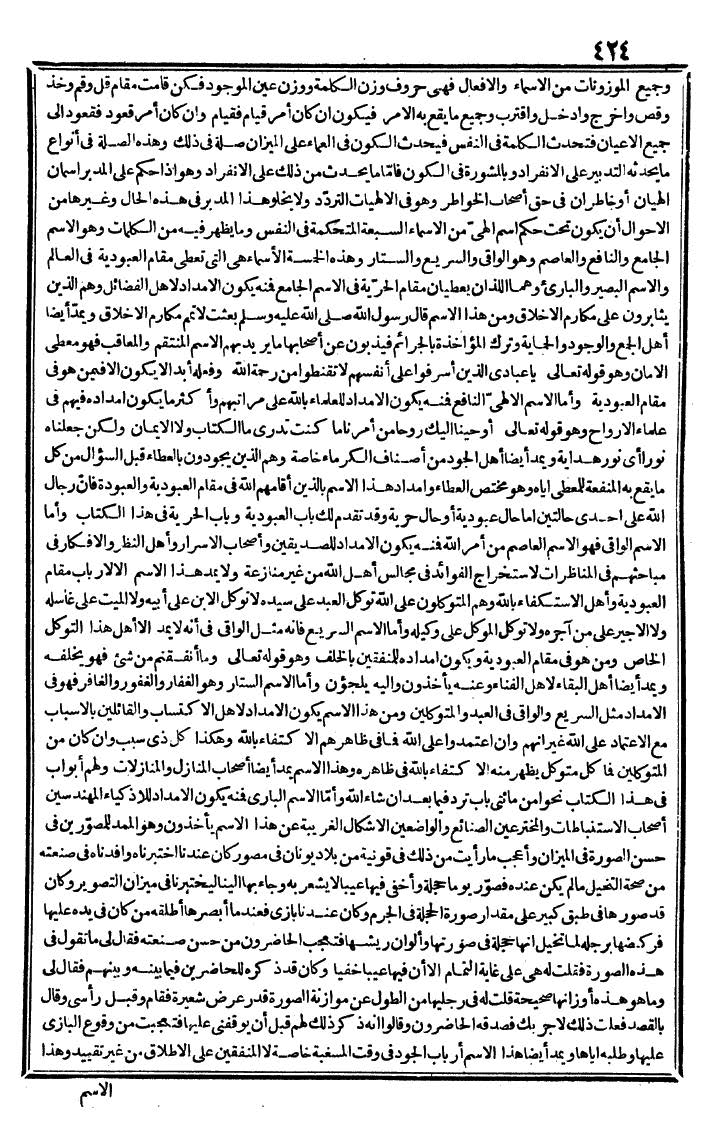 ٤٢٤
وجميع الموزونات من الاسماء والافعال فهى حروف وزن الكلمة ووزن عين الموجود فكن قامت مقام قل وقم وخذ
وقص واخرج وادخل واقترب وجميع ما يقع به الامر فيكون ان كان أمر قيام فقيام وان كان أمر قعود فقعود الى
جميع الاعيان فتحدث الكلمة فى النفس فيحدث الكون فى العماء على الميزان صلة فى ذلك وهذه الصلة فى أنواع
ما يحدثه التدبير على الانفراد وبالمشورة فى الكون فامّا ما يحدث من ذلك على الانفراد وهو اذا حكم على المدبر اسمان
الهيان أو خاطران فى حق أصحاب الخواطر وهو فى الالهيات التردّد ولا يخلو هذا المدبر فى هذه الحال وغيرها من
الاحوال أن يكون تحت حكم اسم الهىّ من الاسماء السبعة المتحكمة فى النفس وما يظهر فيه من الكلمات وهو الاسم
الجامع والنافع والعاصم وهو الواقى والسريع والستار وهذه الخسة الأسماء هى التى تعطى مقام العبودية فى العالم
والاسم البصير والبارئ وهما اللذان يعطيان مقام الحرّية فى الاسم الجامع فنه يكون الامداد لاهل الفضائل وهم الذين
يثابرون على مكارم الاخلاق ومن هذا الاسم قال رسول الله صلى الله عليه وسلم بعثت لاتمم مكارم الاخلاق ويمدّ أيضا
أهل الجمع والوجود والحماية وترك المؤاخذة بالجرائم فيذبون عن أصحابها ما يريد بهم الاسم المنتقم والمعاقب فهو معطى
الامان وهو قوله تعالى ياعبادى الذين أسرفوا على أنفسهم لا تقنطوا من رحمة الله وفعله أبدا لا يكون الا فيمن هو فى
مقام العبودية وأما الاسم الالهىّ النافع فنه يكون الامداد للعلماء بالله على مراتبهم وأكثر ما يكون امداده فيهم فى
علماء الارواح وهو قوله تعالى أوحينا اليك روحا من أمرنا ما كنت تدرى ما الكتاب ولا الايمان ولكن جعلناه
نورا أى نور هداية ويمد أيضا أهل الجود من أصناف الكرماء خاصة وهم الذين يجودون بالعطاء قبل السؤال من كل
ما يقع به المنفعة للمعطى اياه وهو مختص العطاء وامداد هذا الاسم بالذين أقامهم الله فى مقام العبودية والعبودة فان رجال
الله على احدى حالتين اما حال عبودية أو حال حرية وقد تقدم لك باب العبودية وباب الحرية فى هذا الكتاب وأما
الاسم الواقى فهو الاسم العاصم من أمر الله فنه يكون الامداد للصديقين وأصحاب الاسرار وأهل النظر والافكار فى
مباحثهم فى المناظرات لاستخراج الفوائد فى مجالس أهل الله من غير منازعة ولا يمد هذا الاسم الا لارباب مقام
العبودية وأهل الاستكفاء بالله وهم المتوكلون على الله توكل العبد على سيده لا توكل الابن على أبيه ولا الميت على غاسله
ولا الاجير على من آجره ولا توكل الموكل على وكيله وأما الاسم السريع فانه مثل الواقى فى أنه لا يمد الا أهل هذا التوكل
الخاص ومن هو فى مقام العبودية ويكون امداده للمنفقين بالخلف وهو قوله تعالى وما أنفقتم من شئ فهو يخلفه
ويمد أيضا أهل البقاء لا هل الفناء وعنه يأخذون واليه يلجؤن وأما الاسم الستار وهو الغفار والغفور والغافر فهو فى
الامداد مثل السريع والواقى فى العبيد والمتوكلين ومن هذا الاسم يكون الامداد لاهل الاكتساب والقائلين بالاسباب
مع الاعتماد على الله غير انهم وان اعتمدوا على الله فما فى ظاهرهم الاكتفاء بالله وهكذا كل ذى سبب وان كان من
المتوكلين فما كل متوكل يظهر منه الاكتفاء بالله فى ظاهره وهذا الاسم يمد أيضا أصحاب المنازل والمنازلات ولهم أبواب
فى هذا الكتاب نحو من مائتى باب ترد فيما بعد ان شاء الله وأما الاسم البارى فنه يكون الامداد للاذكياء المهندسين
أصحاب الاستنباطات والمخترعين الصنائع والواضعين الاشكال الغريبة عن هذا الاسم يأخذون وهو الممد للمصوّرين فى
حسن الصورة فى الميزان وأعجب ما رأيت من ذلك فى قونية من بلاد يونان فى مصور كان عندنا اختبرناه وافدناه فى صنعته
من صحة التخيل ما لم يكن عنده فصوّر يوما حجلة وأخفى فيها عيبا لا يشعر به وجاء بها الينا ليختبرنا فى ميزان التصوير وكان
قد صورها فى طبق كبير على مقدار صورة الحجلة فى الجرم وكان عندنا بازى فعندما أبصرها أطلقه من كان فى يده عليها
فركضها برجله لما تخيل انها حجلة فى صورتها وألوان ريشها فتعجب الحاضرون من حسن صنعته فقال لى ما تقول فى
هذه الصورة فقلت له هى على غاية التمام الا أن فيها عيبا خفيا وكان قد ذكره للحاضرين فيما بينه وبينهم فقال لى
وما هو هذه أوزانها صحيحة قلت له فى رجليها من الطول عن موازنة الصورة قدر عرض شعيرة فقام وقبل رأسى وقال
بالقصد فعلت ذلك لاجربك فصدقه الحاضرون وقالوا انه ذكر ذلك لهم قبل أن يوقفنى عليها فتعجبت من وقوع البازى
عليها وطلبه اياها ويمد أيضا هذا الاسم أرباب الجود فى وقت المسغبة خاصة لا المنفقين على الاطلاق من غير تقييد وهذا
الاسم